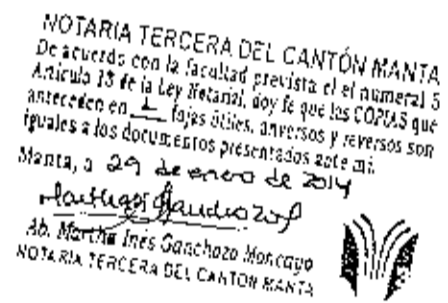 NOTARIA TERCERA DEL CANTÓN MANTA
De acuerdo con la facultad prevista el el numeral 5
Artículo 18 de la Ley Notarial, doy fe que las COPIAS que
anteceden en 1 fojas útiles, anversos y reversos son
iguales a los documentos presentados ante mi.
Manta, a 29 de enero de 2014
Ab. Martha Inés Ganchozo Moncayo
NOTARIA TERCERA DEL CANTON MANTA